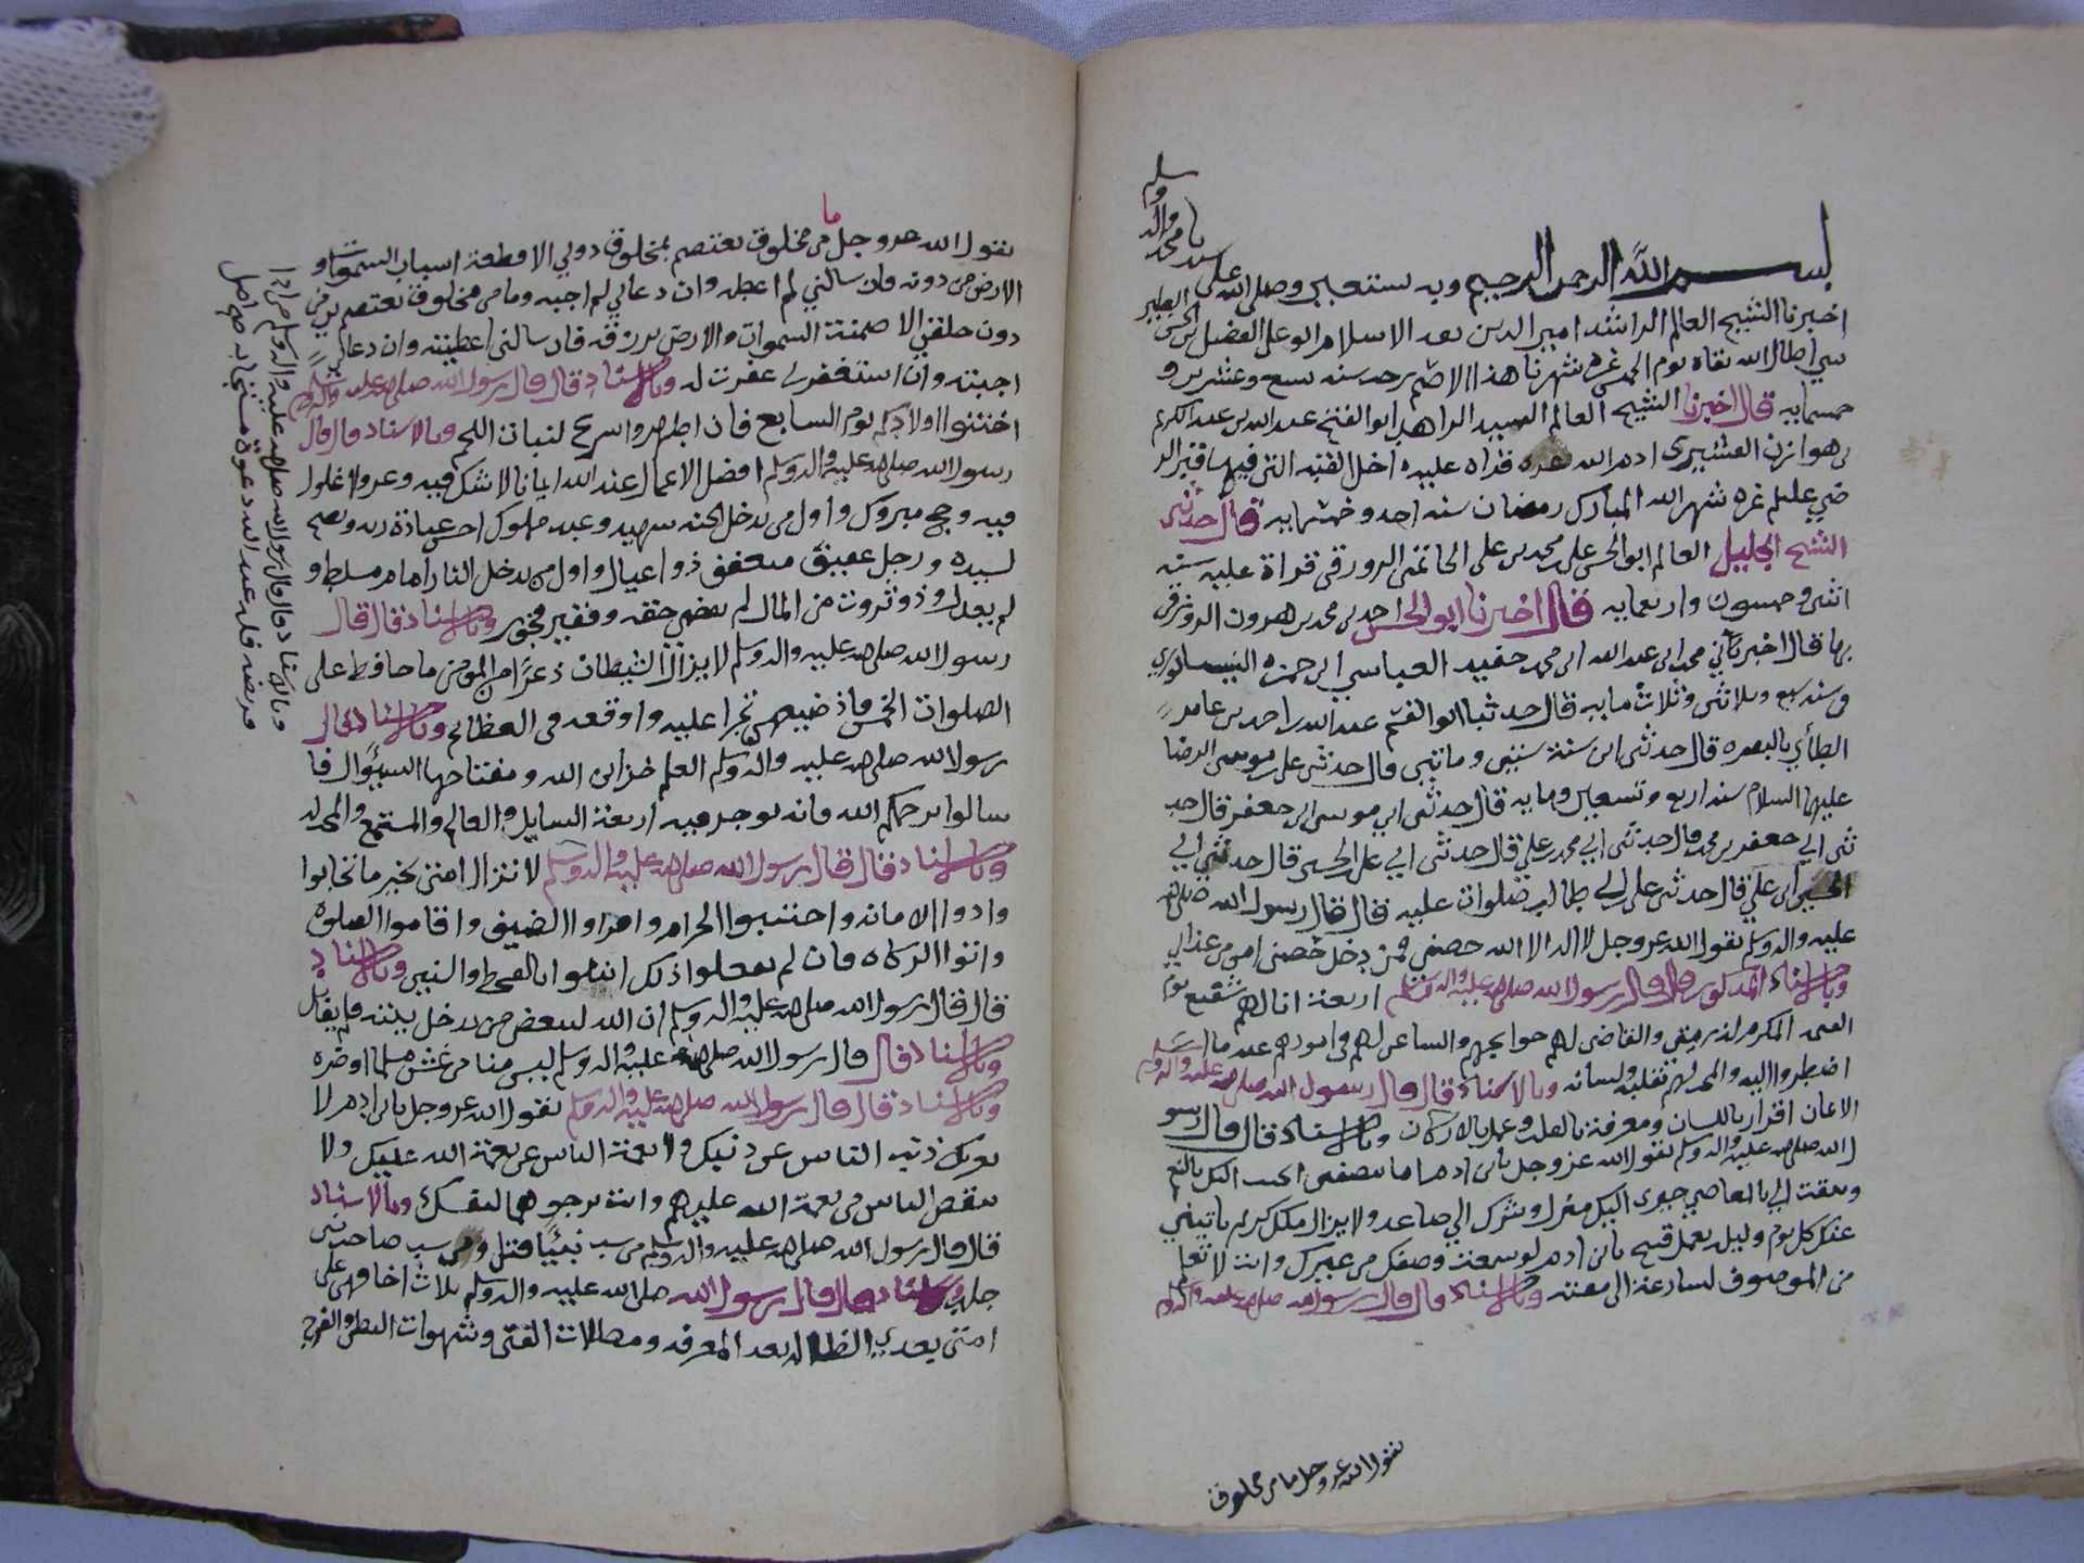 بسم الله الرحمن الرحيم وبه نستعين وصلى الله على سيدنا محمد واله وسلم
اخبرنا الشيخ العالم الراشد امير الدين ابو على الفضل بن الحسن الطبر
سي اطال الله بقاه يوم الخميس غره شهرنا هذا الاصم رجب سنه تسع وعشرين و
خمسمايه قال اخبرنا الشيخ العالم السيد الزاهد ابو الفتح عبد الله بن عبد الكريم
بن هوازن القشيرى ادام الله عزه قراه عليه داخل القبه التي فيها قبر الر
ضي عليلم غره شهر الله المبارك رمضان سنه احد وخمسمايه قال حدثني
الشيخ الجليل العالم ابو الحسن على بن محمد بن على الحاتمي الزوزني قراة عليه سنه
اثنى وخمسون واربعمايه قال اخبرنا ابو الحسن احمد بن محمد بن هرون الزوزني
بها قال اخبرنا ابي محمد بن عبد الله بن محمد حفيد العباس بن حمزه النيسابوري
في سنه سبع وثلاثين وثلاث مايه قال حدثنا ابو القسم عبد الله بن احمد بن عامر
الطائي بالبصره قال حدثني ابي سنة ستين وماتين قال حدثني على بن موسى الرضا
عليهما السلام سنه اربع وتسعين ومايه قال حدثني ابي موسى بن جعفر قال حد
ثني ابي جعفر بن محمد قال حدثني ابي محمد بن علي قال حدثني ابي على بن الحسين قال حدثني ابي
الحسين بن علي قال حدثني على بن ابي طالب صلوات عليه قال قال رسول الله صلى الله
عليه واله وسلم يقول الله عز وجل لا اله الا الله حصني فمن دخل حصني امن من عذابي
وبالاسناد المذكور قال قال رسول الله صلى الله عليه واله وسلم اربعة انا لهم شفيع يوم
القيمه المكرم لذريتي والقاضي لهم حوايجهم والساعي لهم في امورهم عند ما
اضطروا اليه والمحب لهم بقلبه ولسانه وبالاسناد قال قال رسول الله صلى الله عليه واله وسلم
الايمان اقرار باللسان ومعرفة بالقلب وعمل بالاركان وبالاسناد قال قال رسو
ل الله صلى الله عليه واله وسلم يقول الله عز وجل يا بن ادم اما تنصفني اتحبب اليك بالنعم
وتمقت الي بالمعاصي خيري اليك منزل وشرك الي صاعد ولا يزال ملك كريم ياتيني
عنك كل يوم وليل بعمل قبيح يا بن ادم لو سمعت وصفك من غيرك وانت لا تعلم
من الموصوف لسارعت الى مقته وبالاسناد قال قال رسول الله صلى الله عليه واله وسلم
يقول الله عز وجل ما من مخلوق
يقول الله عز وجل ما من مخلوق يعتصم بمخلوق دوني الا قطعة اسباب السموات و
الارض من دونه فان سالني لم اعطه وان دعاني لم اجبه وما من مخلوق يعتصم بي من
دون خلقي الا ضمنت السموات والارض برزقه فان سالني اعطيته وان دعاني
اجبته وان استغفرني غفرت له وبالاسناد قال قال رسول الله صلى الله عليه واله وسلم
اختنوا اولادكم يوم السابع فان اطهر واسرع لنبات اللحم وبالاسناد قال قال
رسول الله صلى الله عليه واله وسلم افضل الاعمال عند الله ايمانا لا شك فيه وغزو لا غلول
فيه وحج مبروك واول من يدخل الجنه شهيد وعبد مملوك احسن عبادة ربه ونصح
لسيده ورجل عفيف متعفف ذو اعيال واول من يدخل النار امام مسلط و
لم يعدل وذو ثروت من المال لم يقضي حقه وفقير فخور وبالاسناد قال قال
رسول الله صلى الله عليه واله وسلم لا يزال الشيطان ذعرا من المومن ما حافظ على
الصلوات الخمس فاذ ضيعهن تجرا عليه واوقعه في العظائم وبالاسناد قال
رسول الله صلى الله عليه واله وسلم العلم خزائن الله ومفتاحها السؤال فا
سالوا يرحمكم الله فانه يوجر فيه اربعة السايل والعالم والمستمع والمحب له
وبالاسناد قال قال رسول الله صلى الله عليه واله وسلم لا تزال امتي بخير ما تحابوا
وادوا الامانه واجتنبوا الحرام واقروا الضيف واقاموا الصلوة
واتوا الزكاه فان لم يفعلوا ذلك ابتلوا بالقحط والسنين وبالاسناد
قال قال رسول الله صلى الله عليه واله وسلم ان الله ليبغض من يدخل بيته فلم يقاتل
وبالاسناد قال قال رسول الله صلى الله عليه واله وسلم ليس منا من غش مسلما او ضره
وبالاسناد قال قال رسول الله صلى الله عليه واله وسلم يقول الله عز وجل يا بن ادم لا
يغرنك ذنب الناس عن ذنبك ولا نعمة الناس عن نعمة الله عليك ولا
تقنط الناس من نعمة الله عليهم وانت ترجوها لنفسك وبالاسناد
قال قال رسول الله صلى الله عليه واله وسلم من سب نبيا قتل ومن سب صاحب نبي
جلد وبالاسناد قال قال رسول الله صلى الله عليه واله وسلم ثلاث اخافهن على
امتي بعدي الضلاله بعد المعرفه ومضلات الفتن وشهوات البطن والفرج
وبالاسناد قال قال رسول الله صلى الله عليه واله وسلم من ادا
فريضه فله عند الله دعوة مستجابه صح اصل